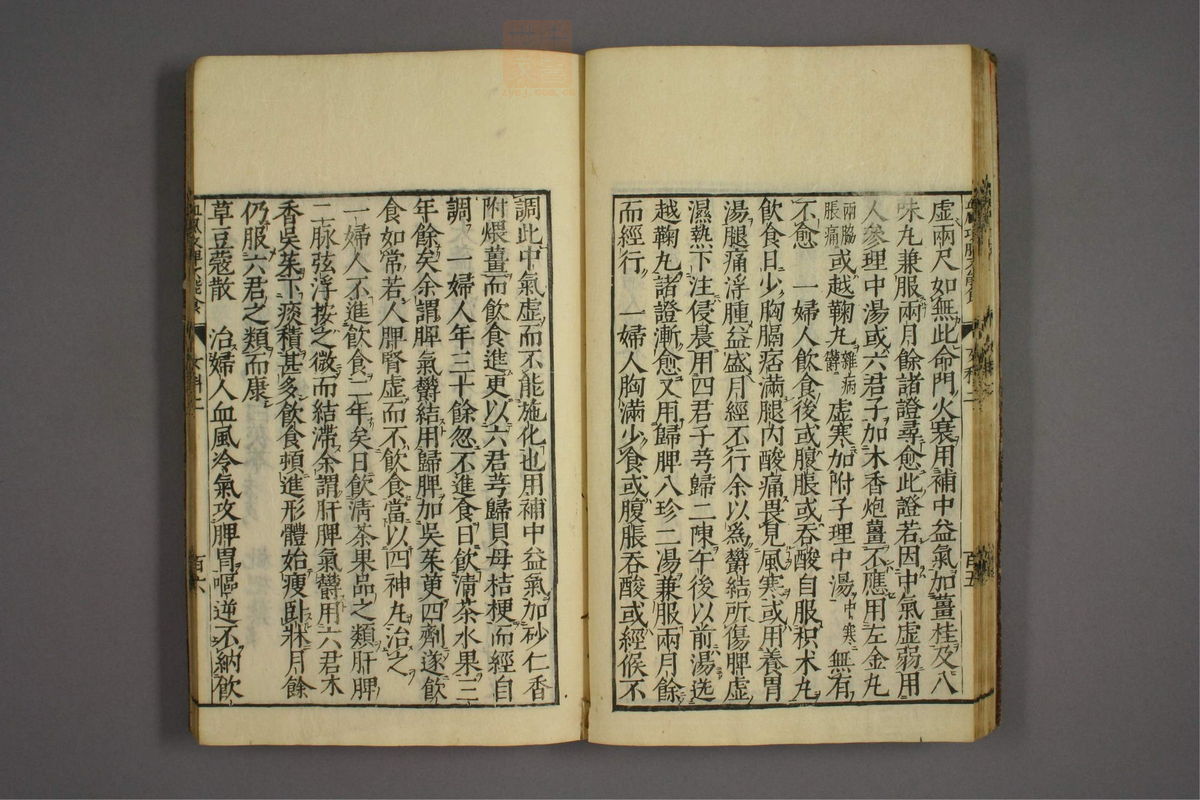 虛兩尺如無此命門火衰用補中益氣加薑桂及八
味丸兼服兩月餘諸證尋愈此證若因中氣虛弱用
人參理中湯或六君子加木香炮薑不應用左金丸
兩脇脹痛或越鞠丸雜病鬱虛寒加附子理中湯中寒無有
不愈 一婦人飲食後或腹脹或吞酸自服枳朮丸
飲食日少胸膈痞滿腿內酸痛畏見風寒或用養胃
湯腿痛浮腫益盛月經不行余以為鬱結所傷脾虛
濕熱下注侵晨用四君子芎歸二陳午後以前湯送
越鞠丸諸證漸愈又用歸脾八珍二湯兼服兩月餘
而經行 一婦人胸滿少食或腹脹吞酸或經候不
百五
調此中氣虛而不能施化也用補中益氣加砂仁香
附煨薑而飲食進更以六君芎歸貝母桔梗而經自
調 一婦人年三十餘忽不進食日飲清茶水果三
年餘矣余謂脾氣鬱結用歸脾加吳茱萸四劑遂飲
食如常若人脾腎虛而不飲食當以四神丸治之
一婦人不進飲食二年矣日飲清茶果品之類肝脾
二脉弦浮按之微而結滯余謂肝脾氣鬱用六君木
香吳茱下痰積甚多飲食頓進形體始瘦臥牀月餘
仍服六君之類而康
草豆蔻散 治婦人血風冷氣攻脾胃嘔逆不納飲
百六